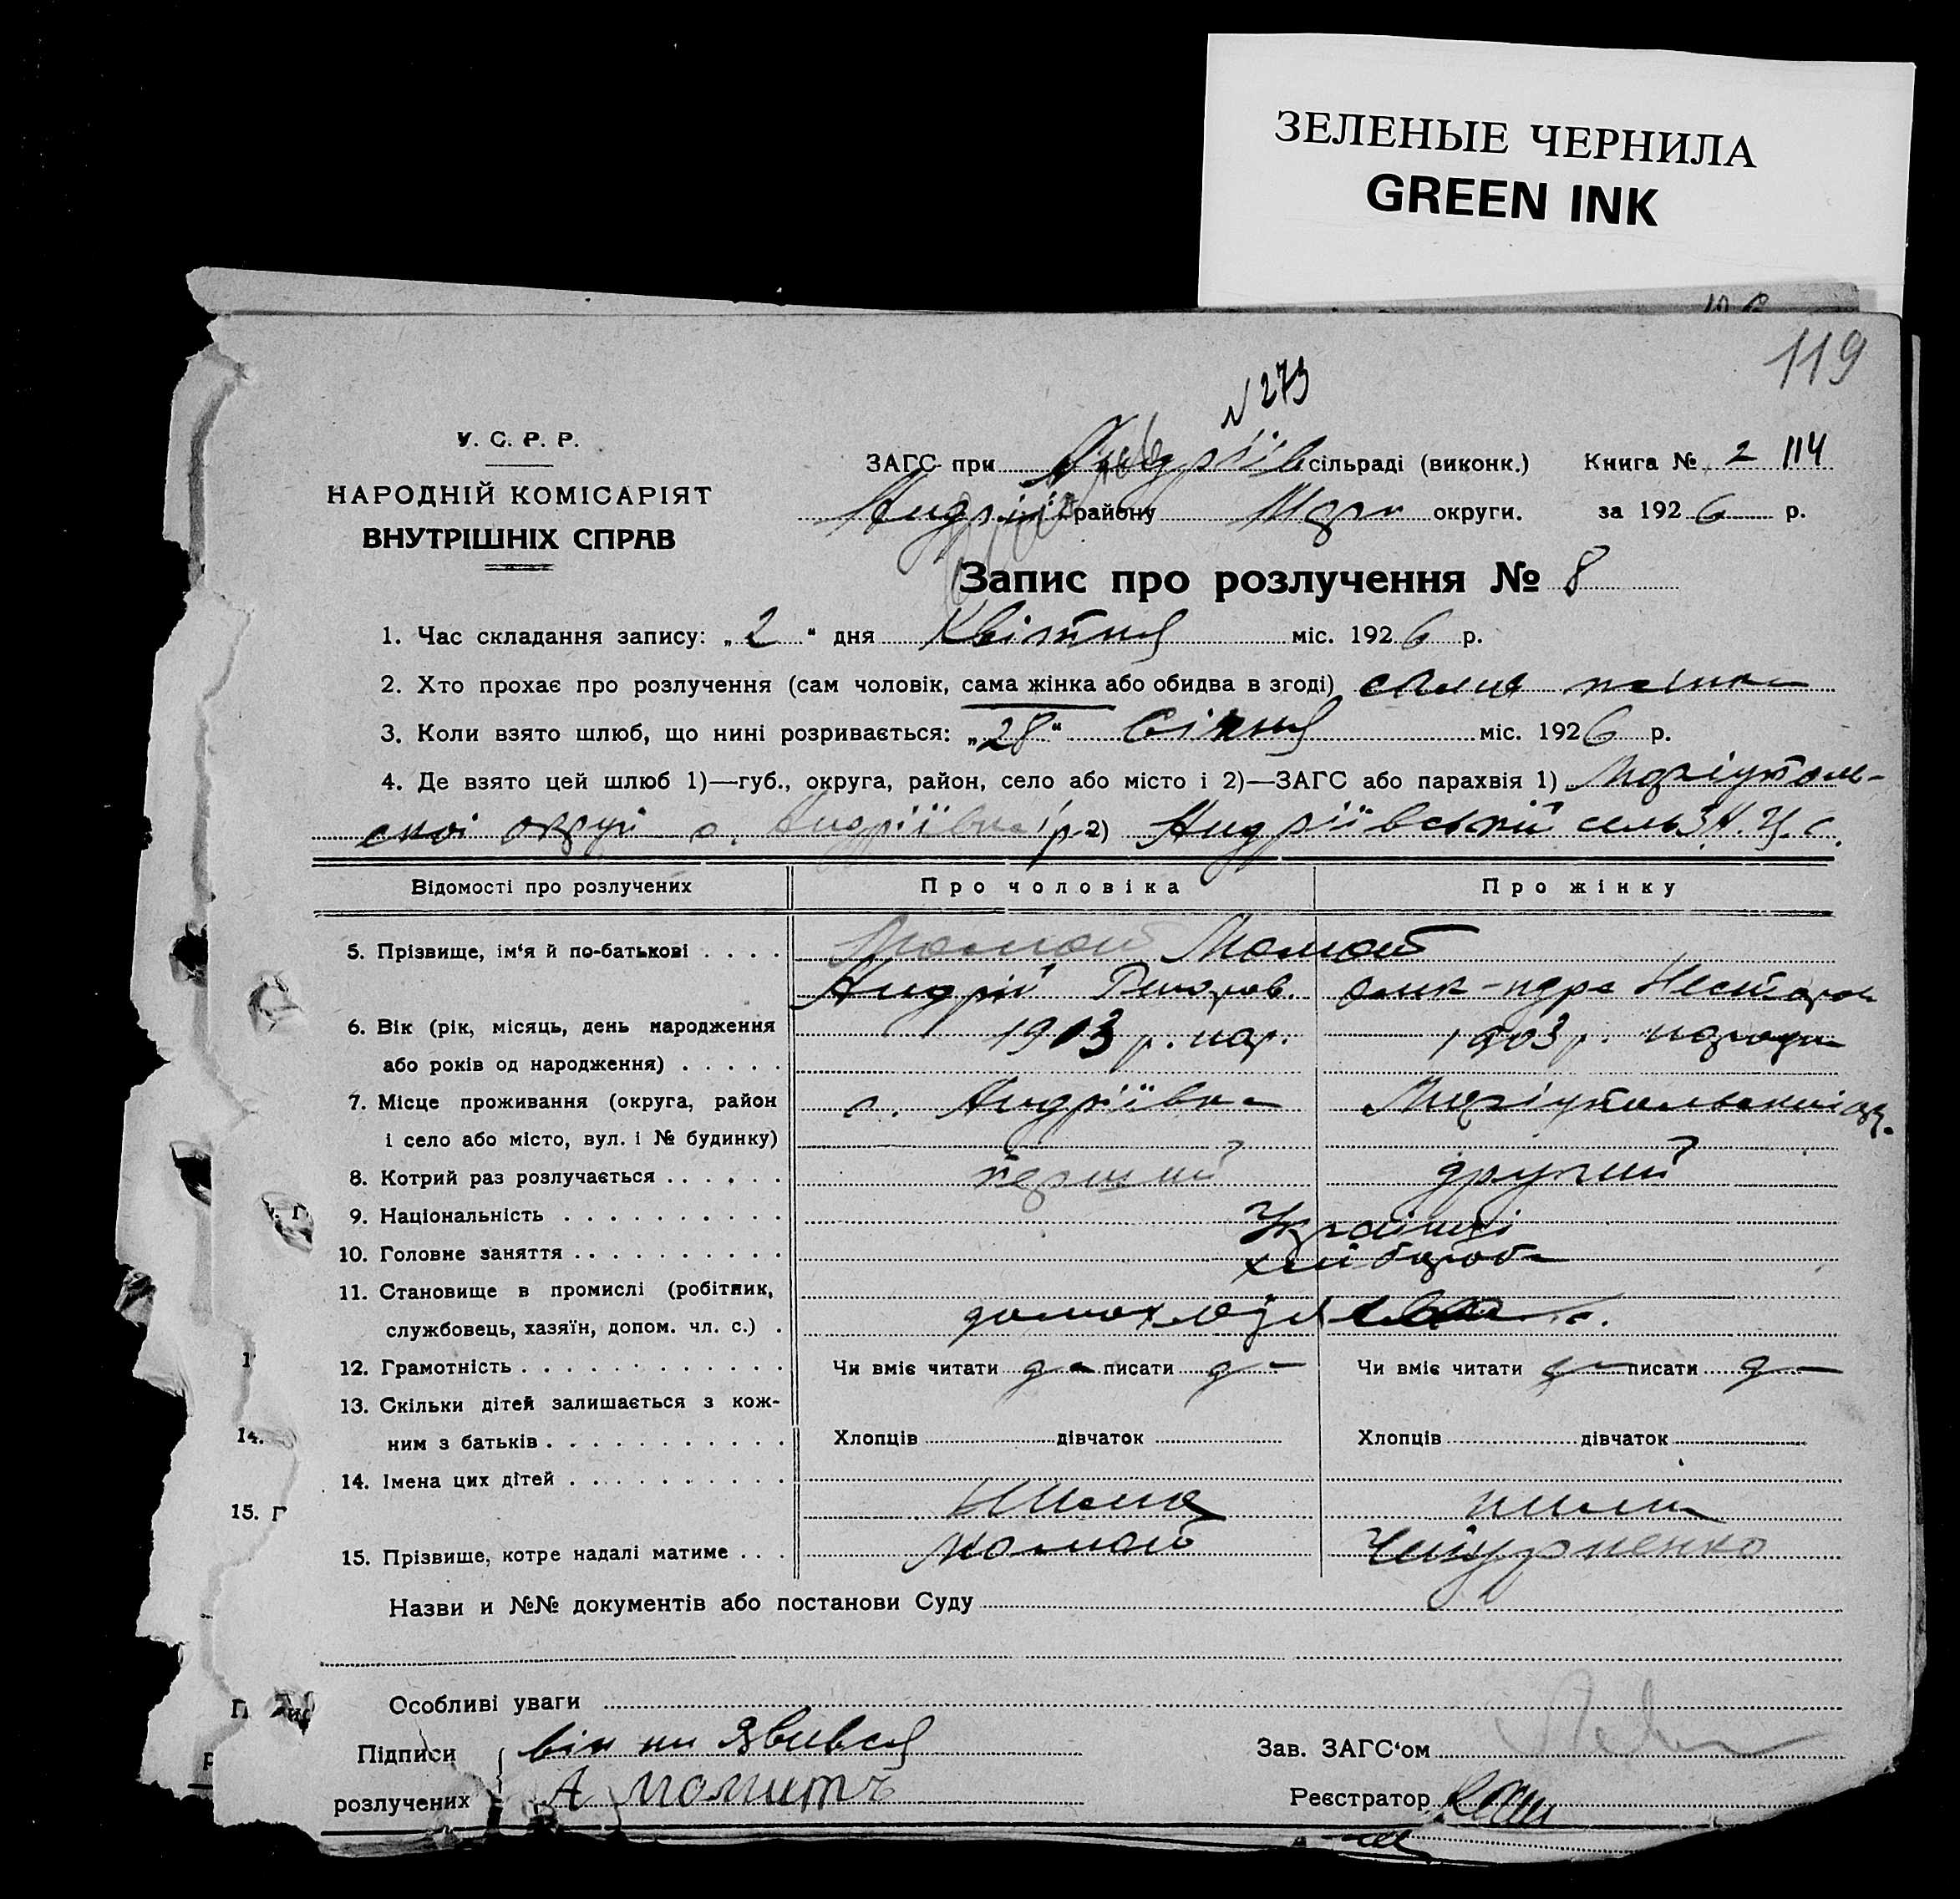 ЗЕЛЕНЫЕ ЧЕРНИЛА
GREEN INK
119
N 273
У. С. Р. Р.
НАРОДНІЙ КОМІСАРІЯТ
ВНУТРІШНІХ СПРАВ
ЗАГС при Андріїв сільраді (виконк.) Книга № 2 114
Андрії району Марі округи. за 1926 р.
Запис про розлучення № 8
1. Час складання запису: „2“ дня Квітня міс. 1926 р.
2. Хто прохає про розлучення (сам чоловік, сама жінка або обидва в згоді)
3. Коли взято шлюб, що нині розривається: „28“ Січня міс. 1926 р.
4. Де взято цей шлюб 1)—губ., округа, район, село або місто і 2)—ЗАГС або парахвія 1) Маріуполь-
скоі округи с. Андріївка 2) Андріївський
Відомості про розлучених Про чоловіка Про жінку
5. Прізвище, ім‘я й по-батькові . . . . Мамот Мамот
Андрій
6. Вік (рік, місяць, день народження 1913 р. нар. 1903 р. народж
або років од народження) . . . . .
7. Місце проживання (округа, район с. Андріївка Маріупольськоі окр.
і село або місто, вул. і № будинку)
8. Котрий раз розлучається . . . . . . перший другий
9. Національність . . . . . . . . . . Українці
10. Головне заняття . . . . . . . . . . хлібороб
11. Становище в промислі (робітник,
службовець, хазяїн, допом. чл. с.) .
12. Грамотність . . . . . . . . . . . . Чи вміє читати да писати да Чи вміє читати да писати да
13. Скільки дітей залишається з кож-
ним з батьків . . . . . . . . . . . Хлопців дівчаток Хлопців дівчаток
14. Імена цих дітей . . . . . . . . . .
15. Прізвище, котре надалі матиме . . . Мамот
Назви и №№ документів або постанови Суду
Особливі уваги
Підписи він ни явився Зав. ЗАГС‘ом
розлучених А Момитъ Реєстратор